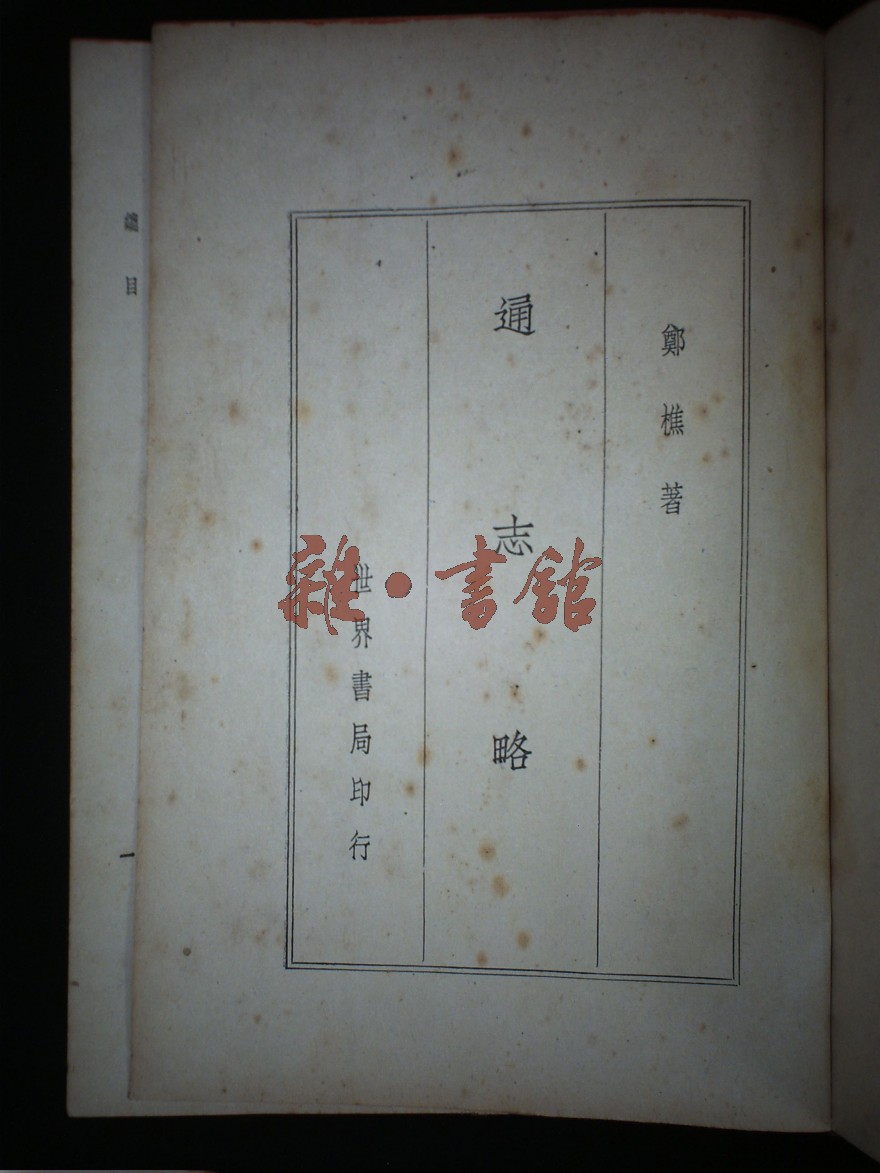 鄭樵著
通志略
世界書局印行
雜·書館
總目
一